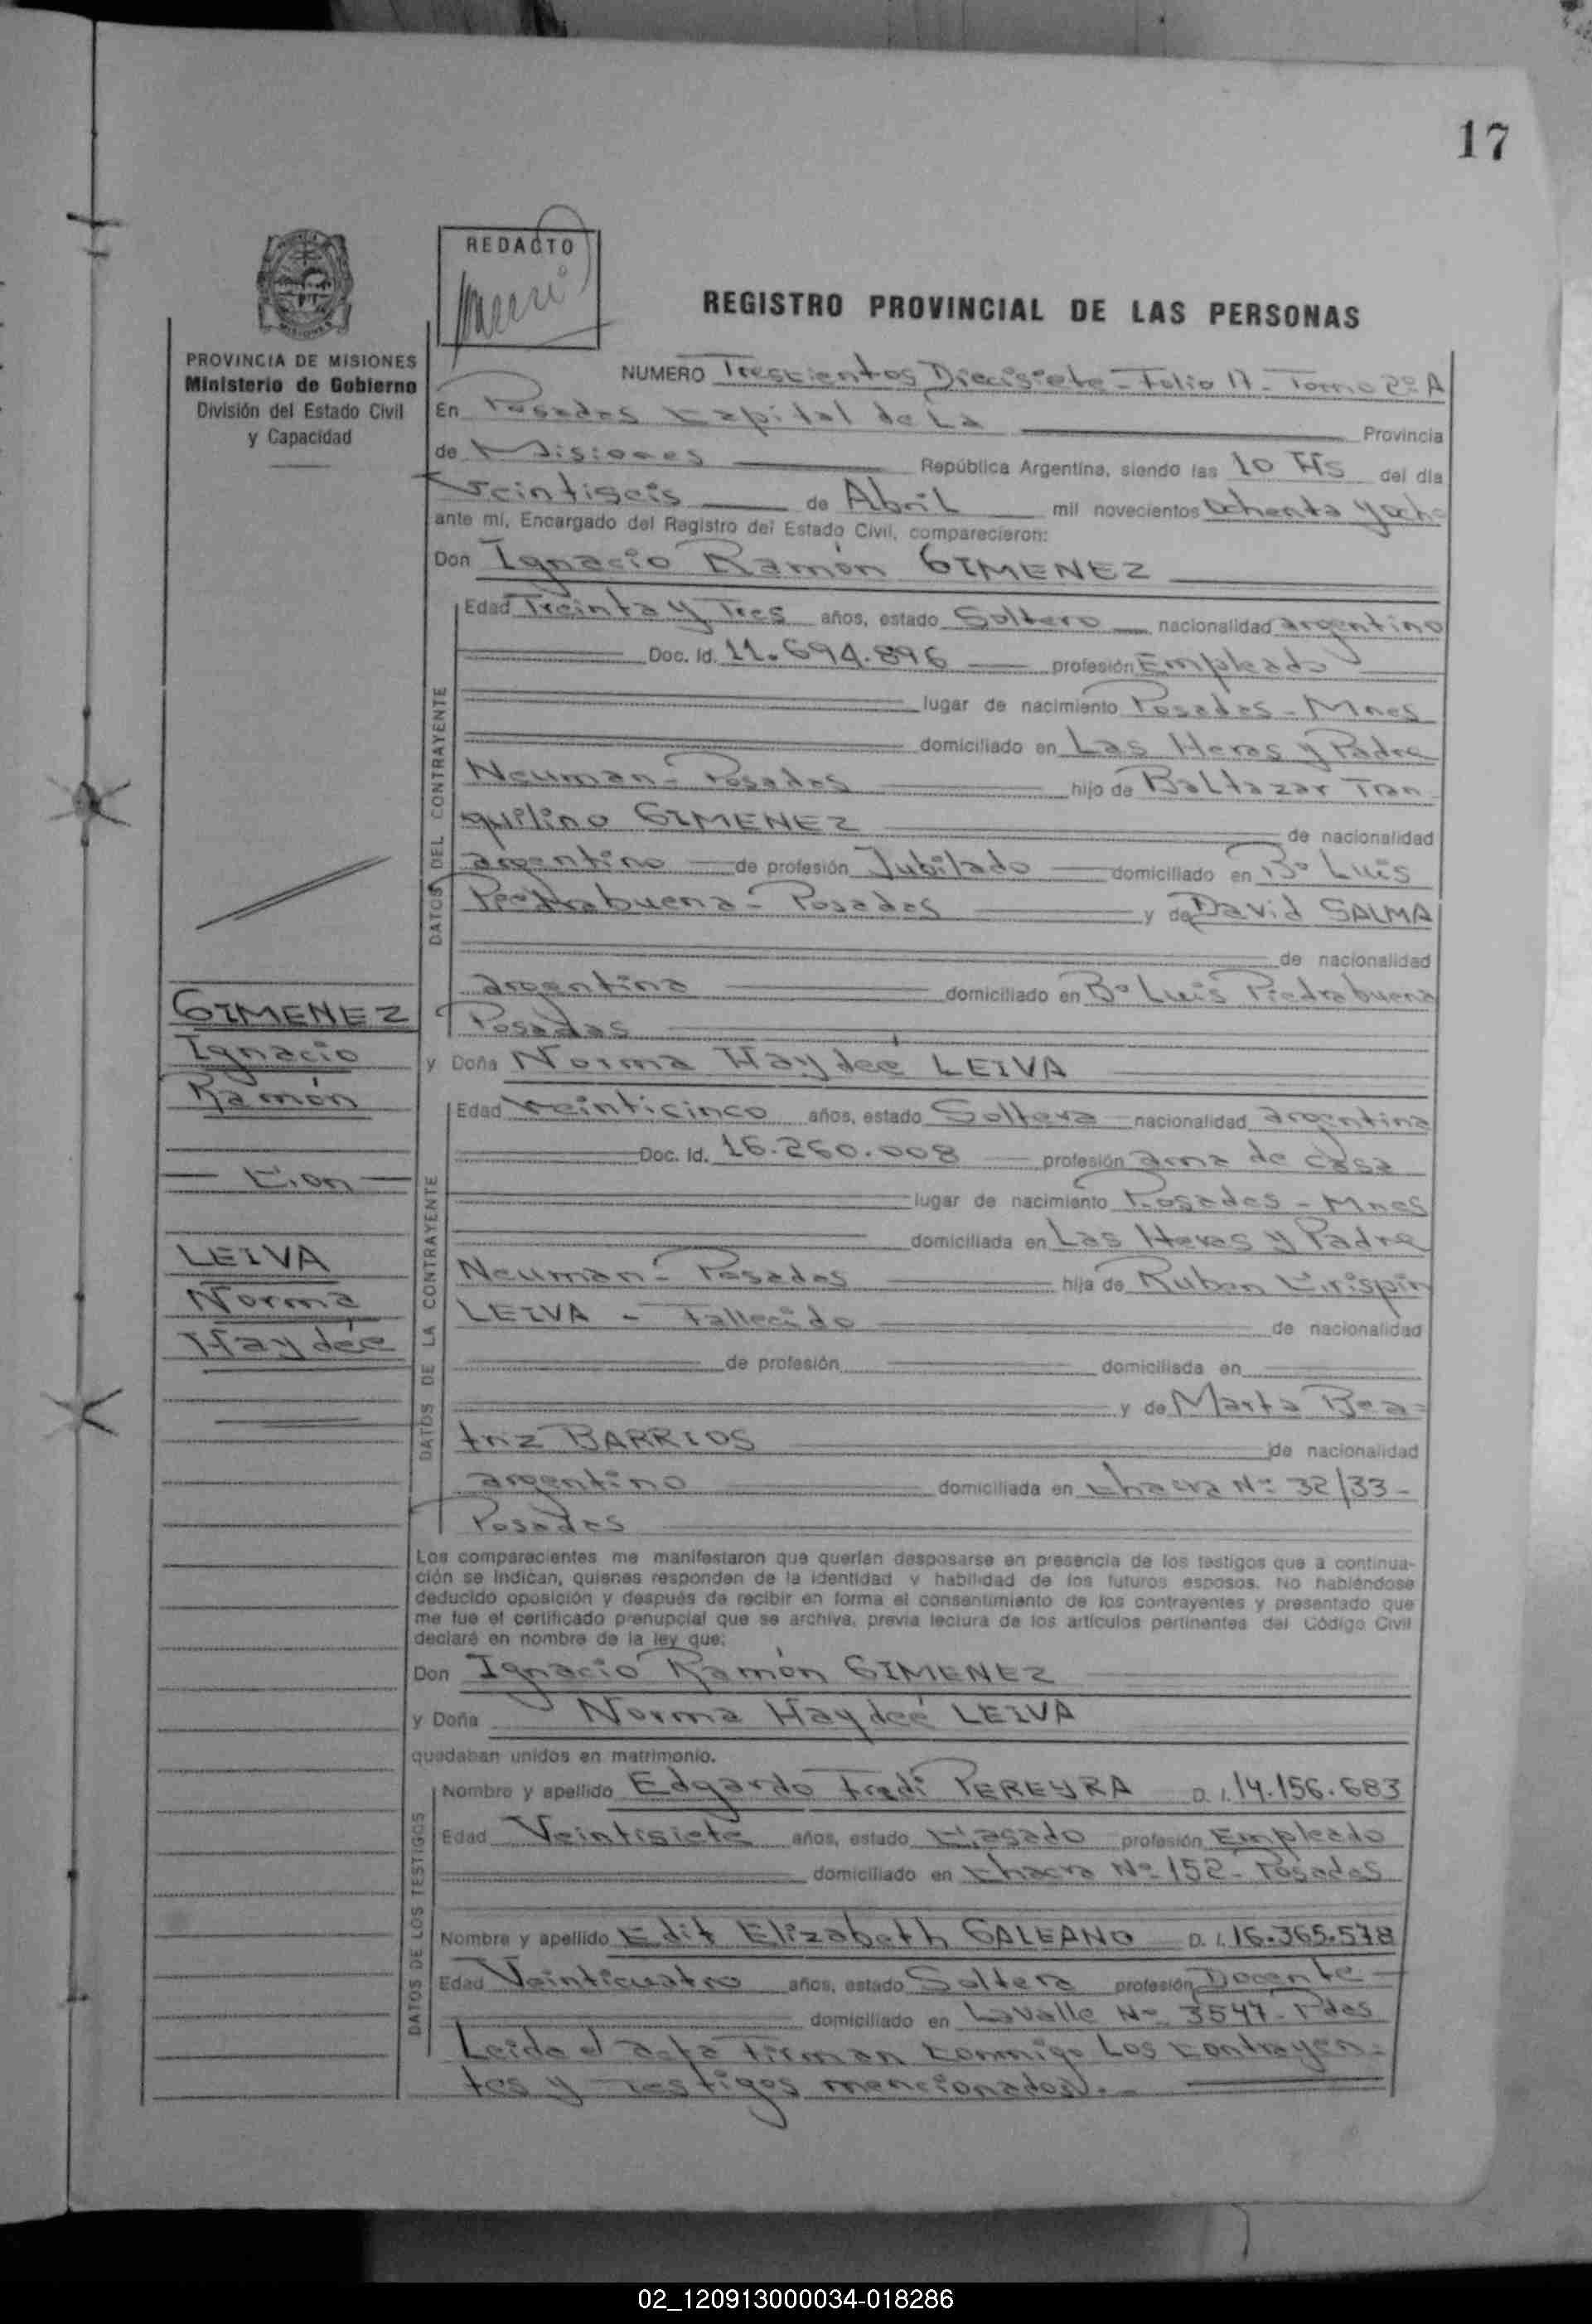 17
REDACTO
REGISTRO PROVINCIAL DE LAS PERSONAS
PROVINCIA DE MISIONES
Ministerio de Gobierno
División del Estado Civil
y Capacidad
NUMERO Trescientos Diecisiete - Folio 17 - Tomo 2º A
En Posadas Capital de La Provincia
de Misiones República Argentina, siendo las 10 Hs del día
Veintiseis de Abril mil novecientos Ochenta y ocho
ante mí, Encargado del Registro del Estado Civil, comparecieron:
Don Ignacio Ramón GIMENEZ
Edad Treinta y Tres años, estado Soltero nacionalidad argentino
Doc. Id. 11.694.896 profesión Empleado
lugar de nacimiento Posadas - Mnes
domiciliado en Las Heras y Padre
Neuman - Posadas hijo de Baltazar Tran
quilino GIMENEZ de nacionalidad
argentino de profesión Jubilado domiciliado en Bº Luis
Piedrabuena - Posadas y de David SALMA
de nacionalidad
argentina domiciliado en Bº Luis Piedrabuena
Posadas
DATOS DEL CONTRAYENTE
y Doña Norma Haydeé LEIVA
Edad Veinticinco años, estado Soltera nacionalidad argentina
Doc. Id. 16.260.008 profesión ama de casa
lugar de nacimiento Posadas - Mnes
domiciliada en Las Heras y Padre
Neuman - Posadas hija de Ruben Crispin
LEIVA - Fallecido de nacionalidad
de profesión domiciliada en
y de Marta Bea-
triz BARRIOS de nacionalidad
argentino domiciliada en Chacra Nº 32/33 -
Posadas
DATOS DE LA CONTRAYENTE
GIMENEZ
Ignacio
Ramón
- Con -
LEIVA
Norma
Haydée
Los comparecientes me manifestaron que querían desposarse en presencia de los testigos que a continua-
ción se indican, quienes responden de la identidad y habilidad de los futuros esposos. No habiéndose
deducido oposición y después de recibir en forma el consentimiento de los contrayentes y presentado que
me fue el certificado prenupcial que se archiva, previa lectura de los artículos pertinentes del Código Civil
declaré en nombre de la ley que:
Don Ignacio Ramón GIMENEZ
y Doña Norma Haydeé LEIVA
quedaban unidos en matrimonio.
Nombre y apellido Edgardo Fredi PEREYRA D. I. 14.156.683
Edad Veintisiete años, estado Casado profesión Empleado
domiciliado en Chacra Nº 152 - Posadas
Nombre y apellido Edit Elizabeth GALEANO D. I. 16.365.578
Edad Veinticuatro años, estado Soltera profesión Docente
domiciliado en Lavalle Nº 3547 - Pdas
DATOS DE LOS TESTIGOS
Leida el acta Firman conmigo Los contrayen-
tes y Testigos mencionados.-
02_120913000034-018286